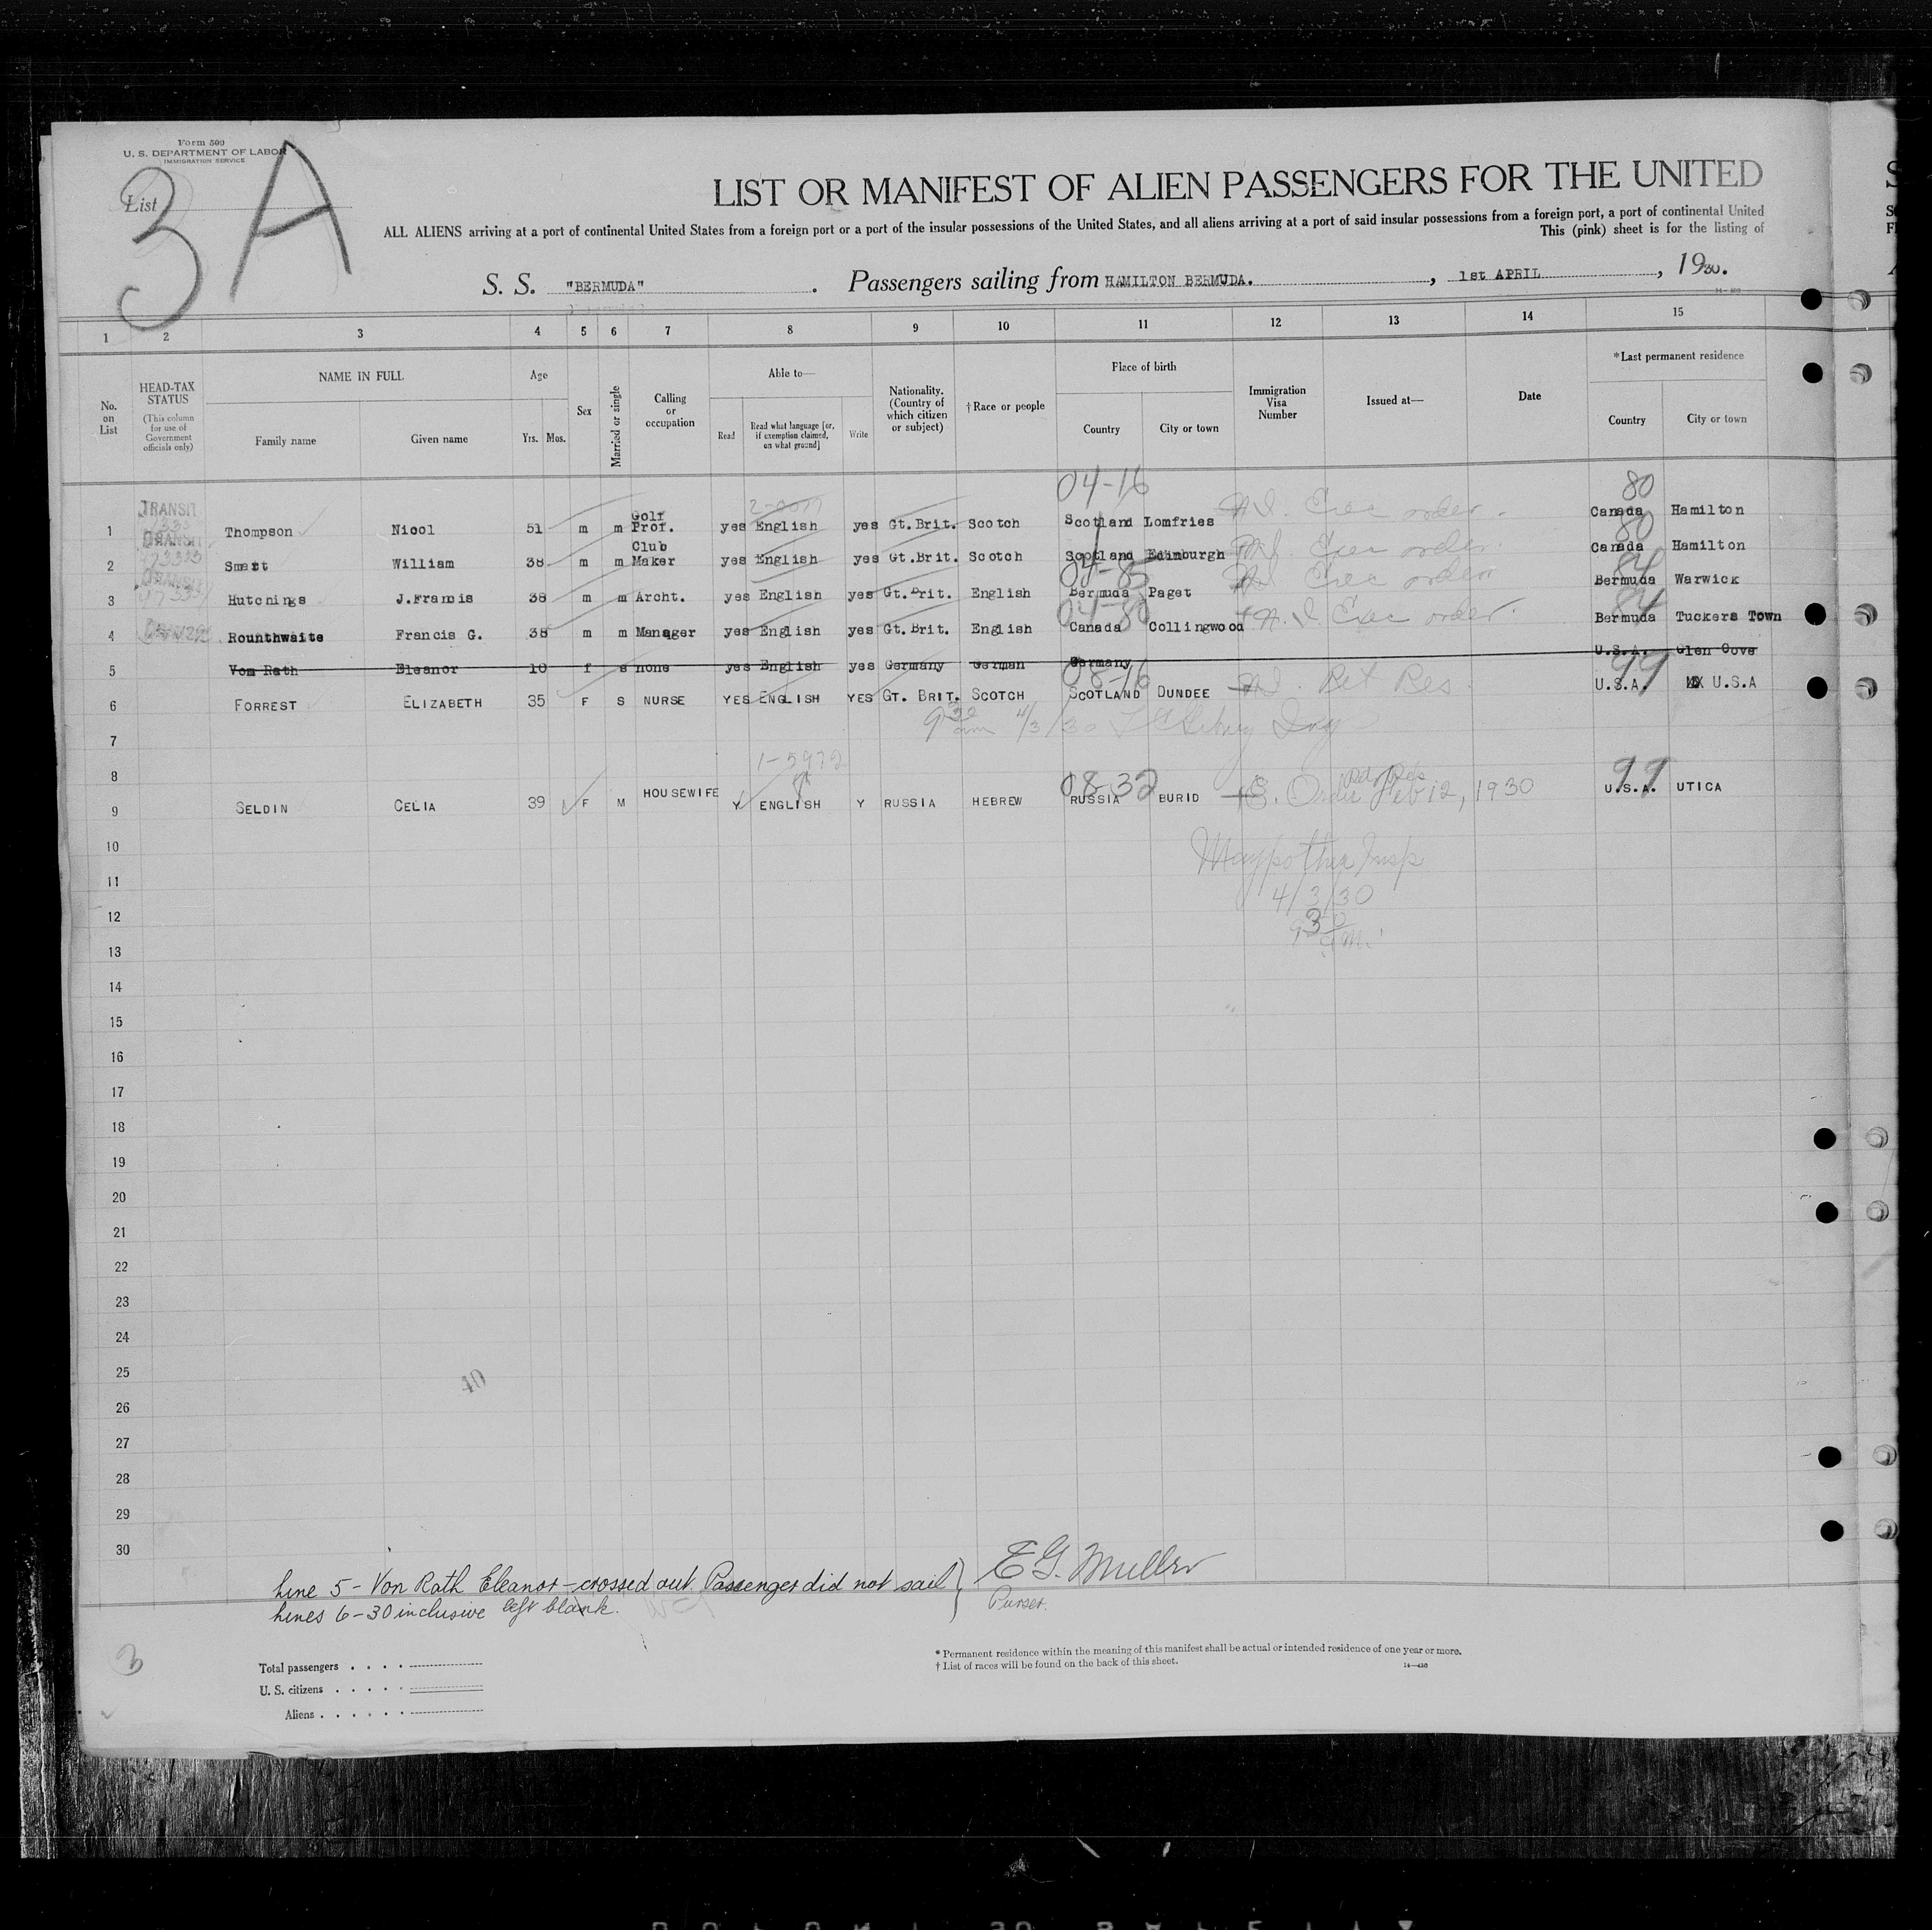 Form 500
U. S. DEPARTMENT OF LABOR
IMMIGRATION SERVICE
3 A
List
LIST OR MANIFEST OF ALIEN PASSENGERS FOR THE UNITED
ALL ALIENS arriving at a port of continental United States from a foreign port or a port of the insular possessions of the United States, and all aliens arriving at a port of said insular possessions from a foreign port, a port of continental United
This (pink) sheet is for the listing of
S. S. "BERMUDA" . Passengers sailing from HAMILTON BERMUDA. , 1st APRIL , 1930.
1 2 3 4 5 6 7 8 9 10 11 12 13 14 15
No. on List
HEAD-TAX STATUS (This column for use of Government officials only)
NAME IN FULL
Family name Given name
Age
Yrs. Mos.
Sex
Married or single
Calling or occupation
Able to—
Read
Read what language [or, if exemption claimed, on what ground]
Write
Nationality. (Country of which citizen or subject)
†Race or people
Place of birth
Country City or town
Immigration Visa Number
Issued at—
Date
*Last permanent residence
Country City or town
04-16 80
1 TRANSIT Thompson Nicol 51 m m Golf Prof. yes English yes Gt.Brit. Scotch Scotland Lomfries Exec order. Canada Hamilton
80
2 TRANSIT Smart William 38 m m Club Maker yes English yes Gt.Brit. Scotch Scotland Edinburgh Exec order. Canada Hamilton
04-85 84
3 TRANSIT Hutchings J.Francis 38 m m Archt. yes English yes Gt.Brit. English Bermuda Paget Exec order Bermuda Warwick
04-80 84
4 Rounthwaite Francis G. 38 m m Manager yes English yes Gt.Brit. English Canada Collingwood Exec order. Bermuda Tuckers Town
5 Vom Rath Eleanor 10 f s none yes English yes Germany German Germany U.S.A. Glen Cove
08-16 99
6 FORREST ELIZABETH 35 F S NURSE YES ENGLISH YES GT. BRIT. SCOTCH SCOTLAND DUNDEE Ret Res. U.S.A. U.S.A
7 9 30 am 4/3/30
8 1-5972
08-32 99
9 SELDIN CELIA 39 F M HOUSEWIFE Y ENGLISH Y RUSSIA HEBREW RUSSIA BURID E. Order Feb 12, 1930 U.S.A. UTICA
10
11
4/3/30
12
9 30 am.
13
14
15
16
17
18
19
20
21
22
23
24
25
40
26
27
28
29
30
Line 5 - Von Rath Eleanor - crossed out Passenger did not sail
Lines 6-30 inclusive left blank.
E G. Muller
Purser.
3
Total passengers
U. S. citizens
Aliens
* Permanent residence within the meaning of this manifest shall be actual or intended residence of one year or more.
† List of races will be found on the back of this sheet.